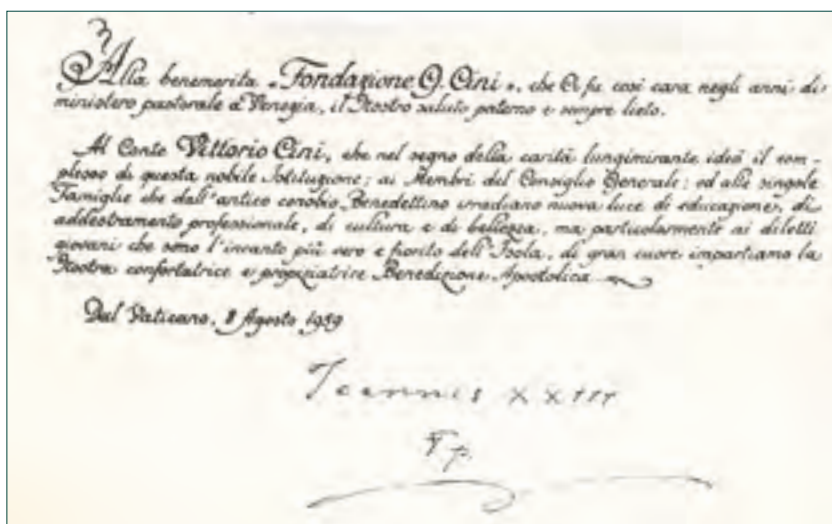 Alla benemerita «Fondazione G. Cini», che Ci fu così cara negli anni di
ministero pastorale a Venezia, il Nostro saluto paterno e sempre lieto.
Al Conte Vittorio Cini, che nel segno della carità lungimirante ideò il com-
plesso di questa nobile Istituzione; ai Membri del Consiglio Generale; ed alle singole
Famiglie che dall'antico cenobio Benedettino irradiano nuova luce di educazione, di
addestramento professionale, di cultura e di bellezza, ma particolarmente ai diletti
giovani che sono l'incanto più vero e fiorito dell'Isola, di gran cuore impartiamo la
Nostra confortatrice e propiziatrice Benedizione Apostolica
Dal Vaticano, 8 Agosto 1959
Ioannes XXIII
Pp.